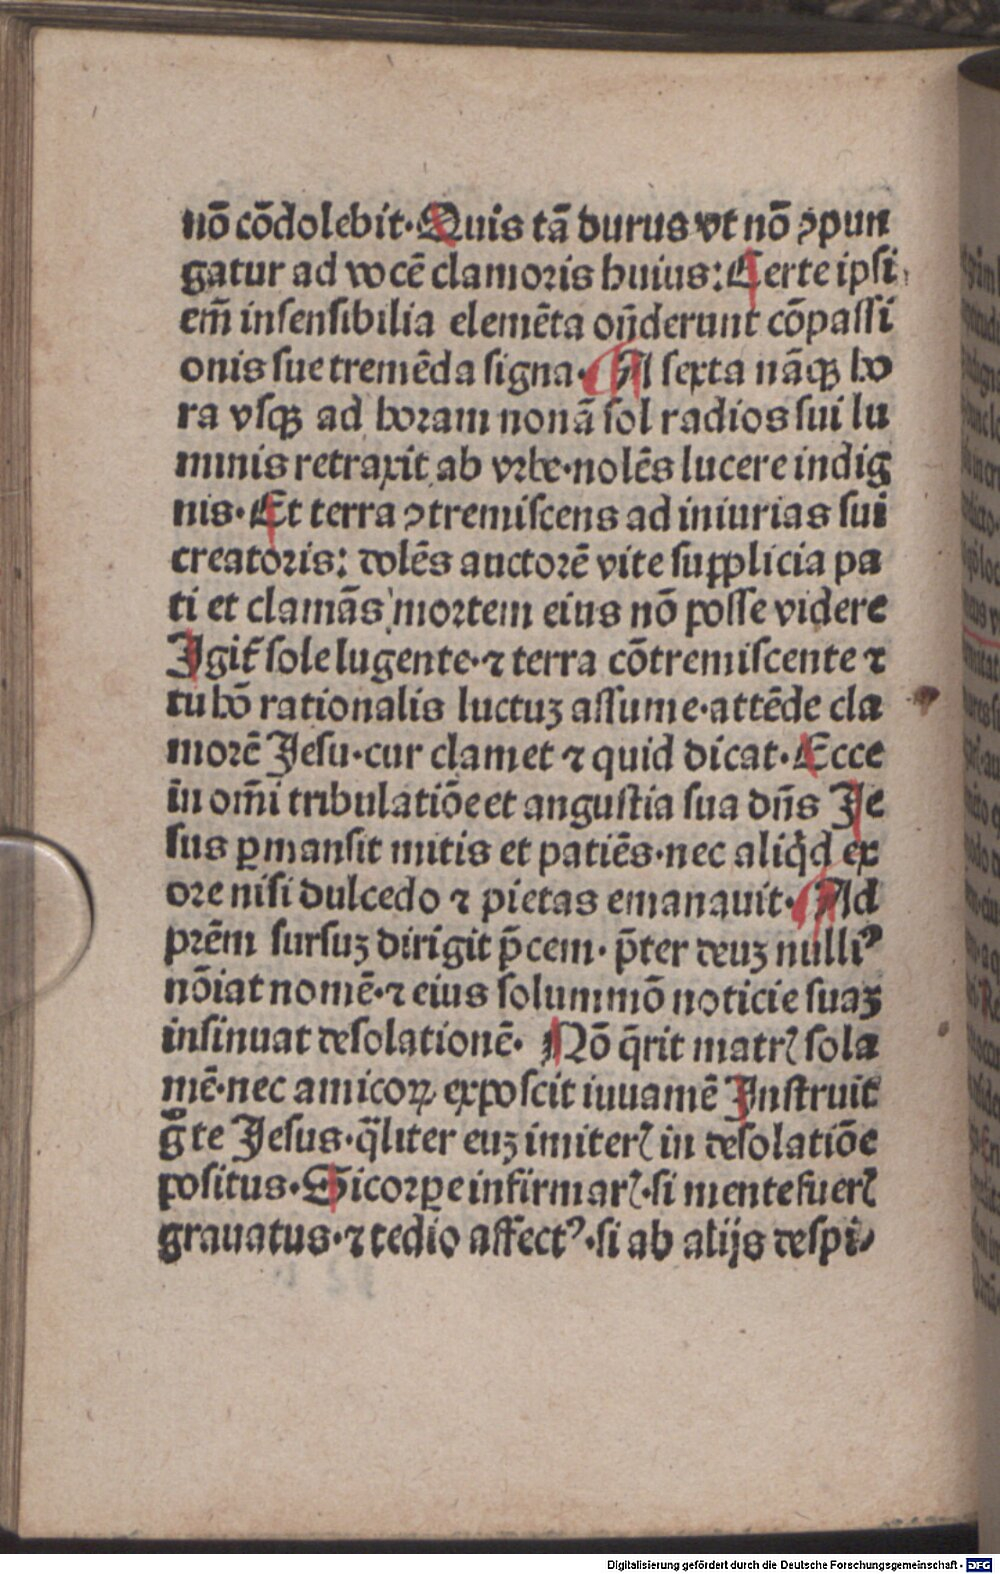 nō cōdolebit·Quis tā durus vt nō ꝯpun
gatur ad vocē clamoris huius:Certe ipsi
em̄ insensibilia elemēta on̄derunt cōpassi
onis sue tremēda signa·A sexta nāqꝫ ho
ra vsqꝫ ad horam nonā sol radios sui lu
minis retraxit ab vrbe·nolēs lucere indig
nis·Et terra ꝯtremiscens ad iniurias sui
creatoris: dolēs auctorē vite supplicia pa
ti et clamās mortem eius nō posse videre
Igit̄ sole lugente·⁊ terra cōtremiscente ⁊
tu hō rationalis luctuꝫ assume·attēde cla
morē Jesu·cur clamet ⁊ quid dicat·Ecce
in om̄i tribulatiōe et angustia sua dn̄s Je
sus ꝑmansit mitis et patiēs·nec aliq̇d ex
ore nisi dulcedo ⁊ pietas emanauit·Ad
prēm sursuꝫ dirigit p̄cem·p̄ter deuꝫ nulliꝰ
nōiat nomē·⁊ eius solummō noticie suaꝫ
insinuat desolationē·Nō q̄rit matrꝭ sola
mē·nec amicoꝝ exposcit iuuamē Instruit
gͦ te Jesus·q̄liter euꝫ imiterꝭ in desolatiōe
positus·Si corꝑe infirmarꝭ·si mente fuerꝭ
grauatus·⁊ tedio affectꝰ·si ab alijs despi⸗
Digitalisierung gefördert durch die Deutsche Forschungsgemeinschaft - DFG